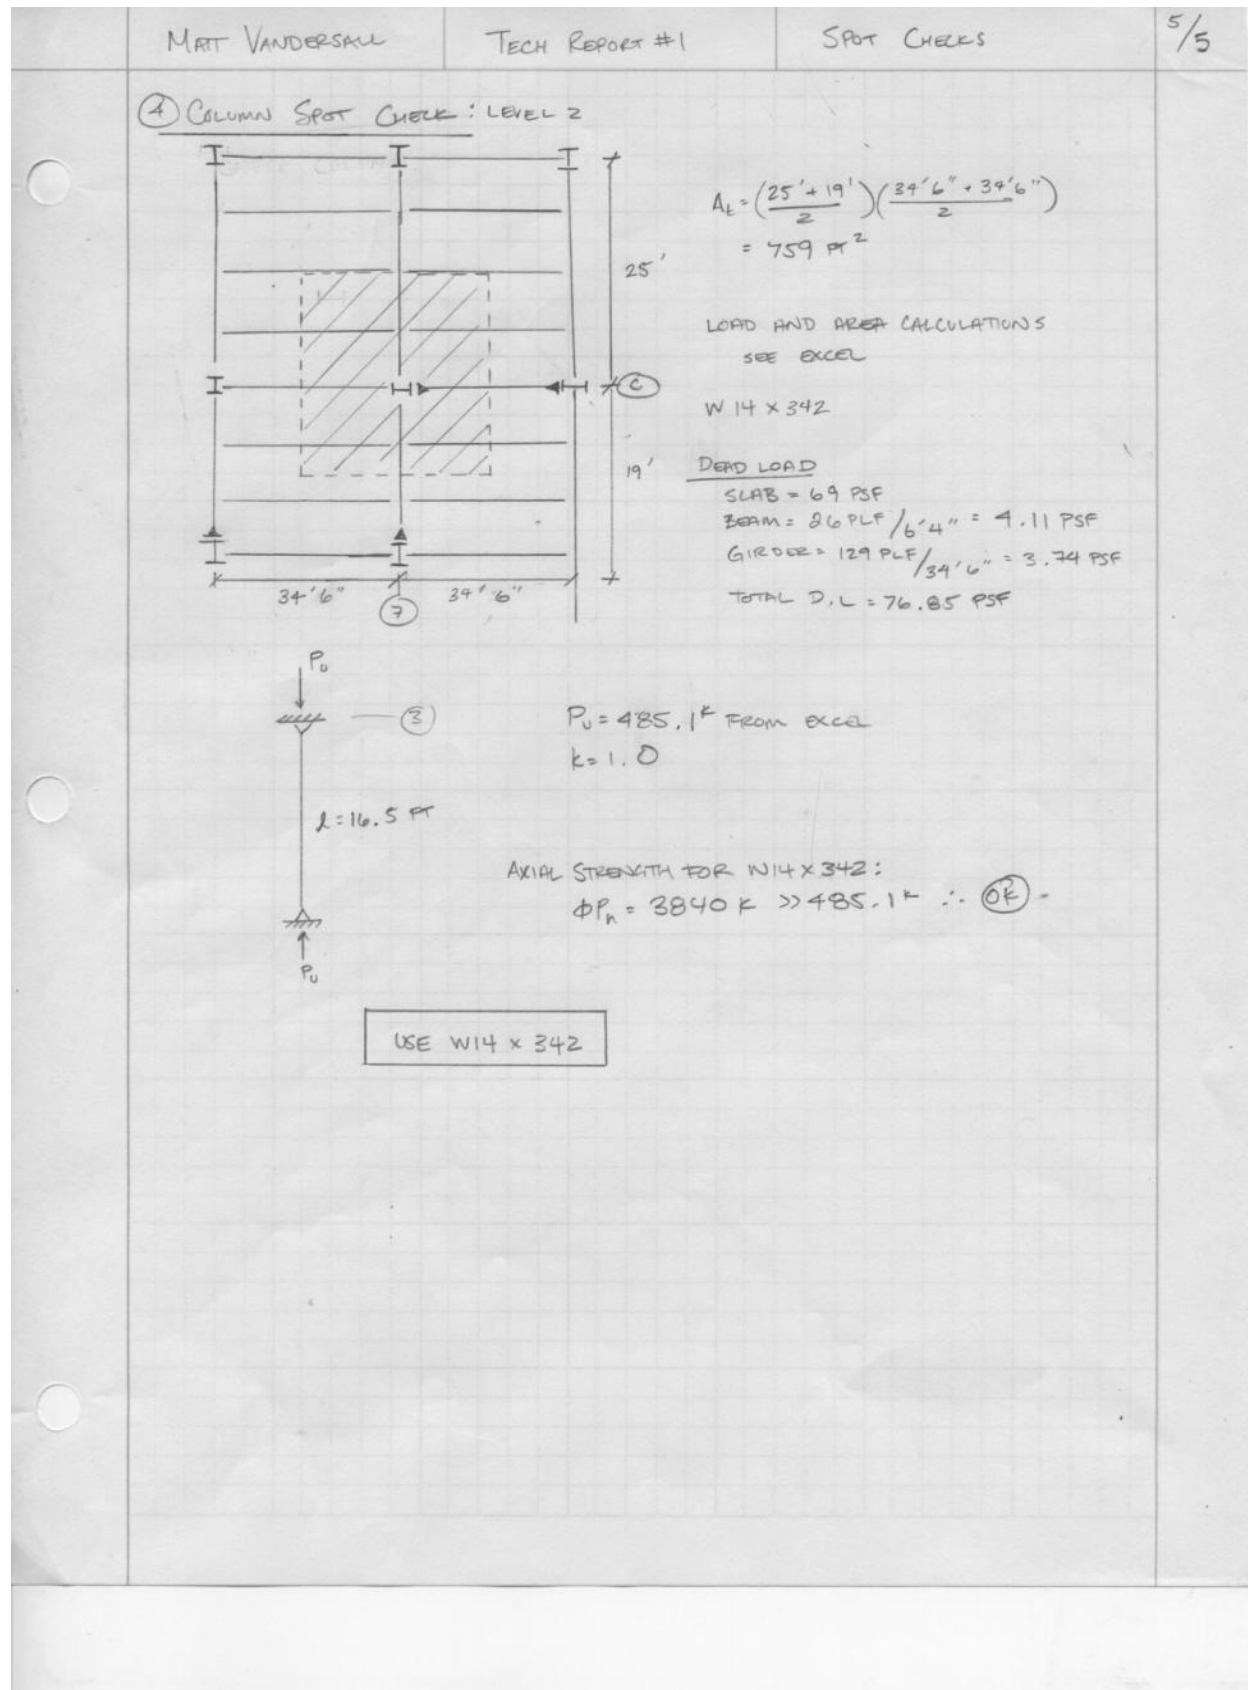 MATT VANDERSALL
TECH REPORT #1
SPOT CHECKS
5/5
④ COLUMN SPOT CHECK: LEVEL 2
A_t = (25' + 19' / 2)(34'6" + 34'6" / 2)
= 759 FT²
25'
LOAD AND AREA CALCULATIONS
SEE EXCEL
C
W 14 x 342
19'
DEAD LOAD
SLAB = 69 PSF
BEAM = 26 PLF/6'4" = 4.11 PSF
GIRDER = 129 PLF/34'6" = 3.74 PSF
TOTAL D.L = 76.85 PSF
34'6"
34'6"
7
Pu
3
Pu = 485.1ᵏ FROM EXCEL
k = 1.0
l = 16.5 FT
AXIAL STRENGTH FOR W14 x 342:
ΦPn = 3840 K >> 485.1ᵏ ∴ OK -
Pu
USE W14 x 342